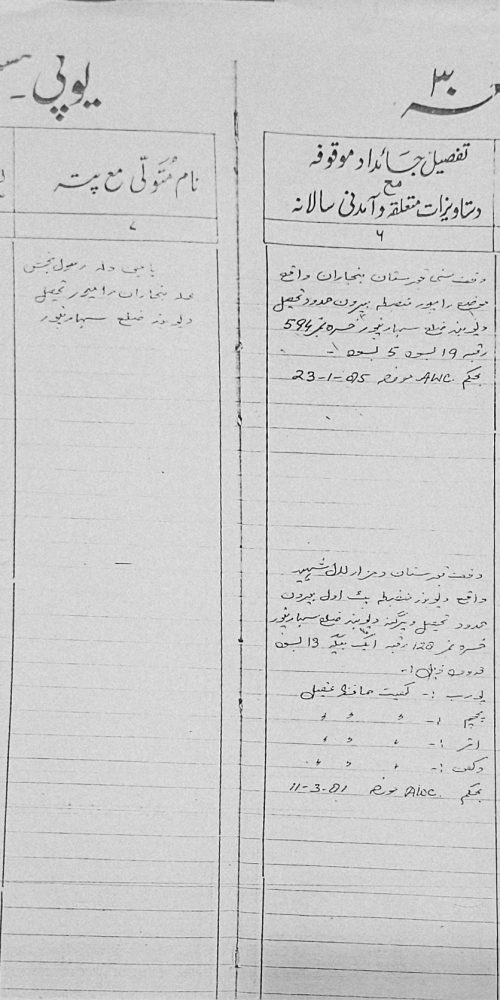 ۳۰
تفصیل جائداد موقوفہ
مع
دستاویزات متعلقہ و آمدنی سالانہ
۶
وقف سنی قبرستان بنجاران واقع
موضع رامپور منصلہ بیرون حدود تحصیل
دیوبند ضلع سہارنپور خسرہ نمبر 594
رقبہ 19 بسوہ 5 بسوہ :-
بحکم AWC مورخہ 23-1-85
وقف قبرستان و مزار لال شہید
واقع دیوبند منصلہ بیرون
حدود تحصیل و پرگنہ دیوبند ضلع سہارنپور
خسرہ نمبر 128 رقبہ ایک بیگہ 13 بسوہ
حدود ذیل :-
پورب :- کھیت حافظ عقیل
پچھم :- " " "
اتر :- " " "
دکھن :- " " "
بحکم AWC مورخہ 11-3-81
یوپی
نام مُتَولّی مع پتہ
۷
ولد رسول بخش
محلہ بنجاران رامپور تحصیل
دیوبند ضلع سہارنپور